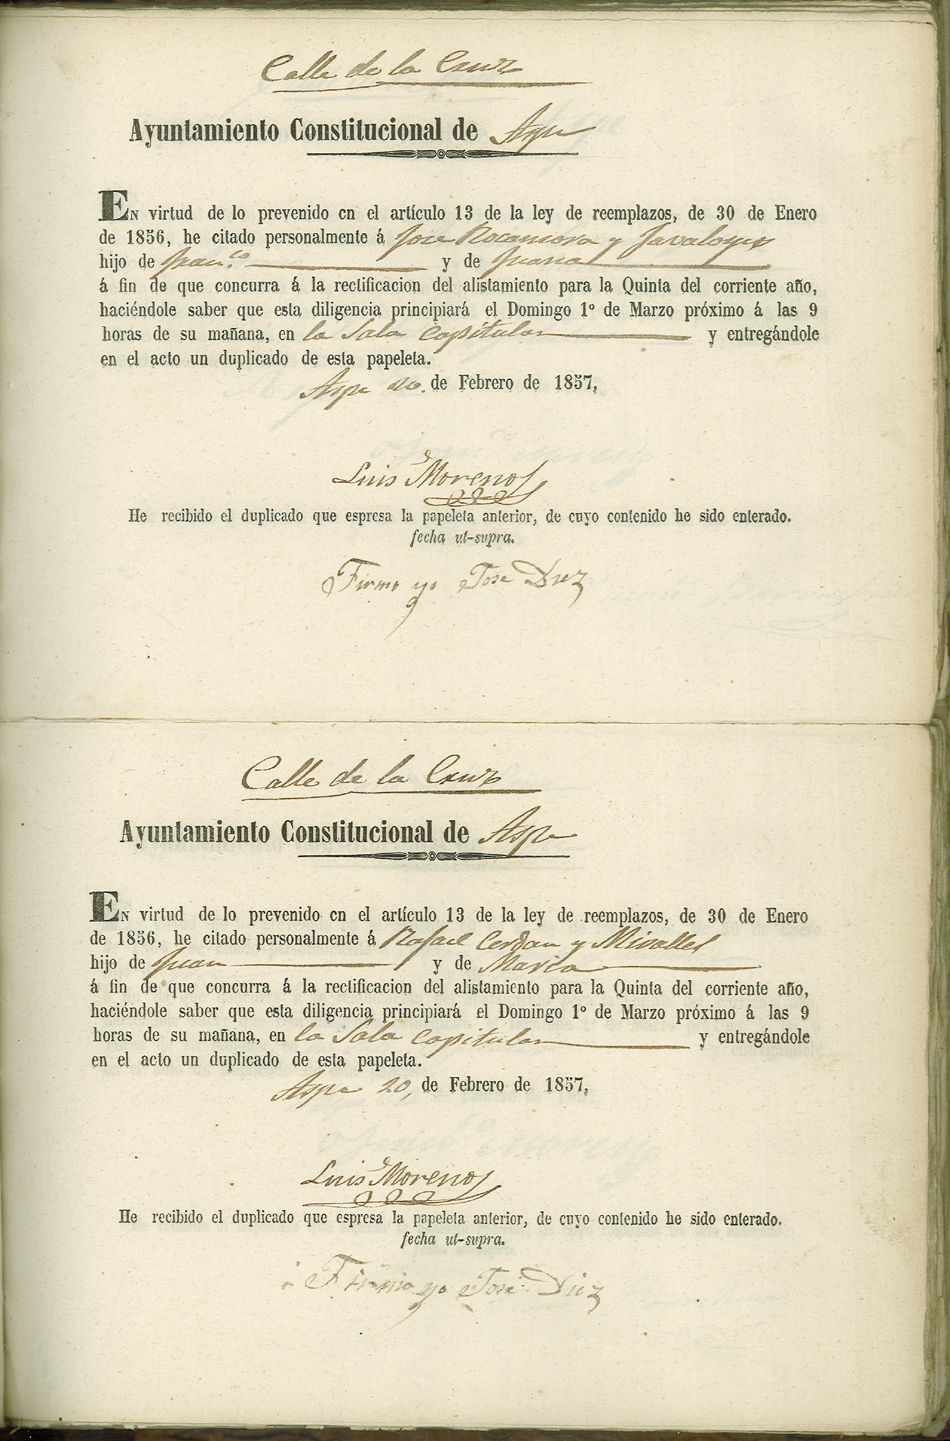 Calle de la Cruz
Ayuntamiento Constitucional de Aspe
EN virtud de lo prevenido en el artículo 13 de la ley de reemplazos, de 30 de Enero
de 1856, he citado personalmente á Jose Rocamora y Javaloyes
hijo de Fran.co y de Juana
á fin de que concurra á la rectificacion del alistamiento para la Quinta del corriente año,
haciéndole saber que esta diligencia principiará el Domingo 1º de Marzo próximo á las 9
horas de su mañana, en la Sala Capitular y entregándole
en el acto un duplicado de esta papeleta.
Aspe 20 de Febrero de 1857,
Luis Moreno
He recibido el duplicado que espresa la papeleta anterior, de cuyo contenido he sido enterado.
fecha ut-supra.
Firmo yo Jose Diez
Calle de la Cruz
Ayuntamiento Constitucional de Aspe
EN virtud de lo prevenido en el artículo 13 de la ley de reemplazos, de 30 de Enero
de 1856, he citado personalmente á Rafael Cerdan y Miralles
hijo de Juan y de Maria
á fin de que concurra á la rectificacion del alistamiento para la Quinta del corriente año,
haciéndole saber que esta diligencia principiará el Domingo 1º de Marzo próximo á las 9
horas de su mañana, en la Sala Capitular y entregándole
en el acto un duplicado de esta papeleta.
Aspe 20, de Febrero de 1857,
Luis Moreno
He recibido el duplicado que espresa la papeleta anterior, de cuyo contenido he sido enterado.
fecha ut-supra.
Firmo yo Jose Diez